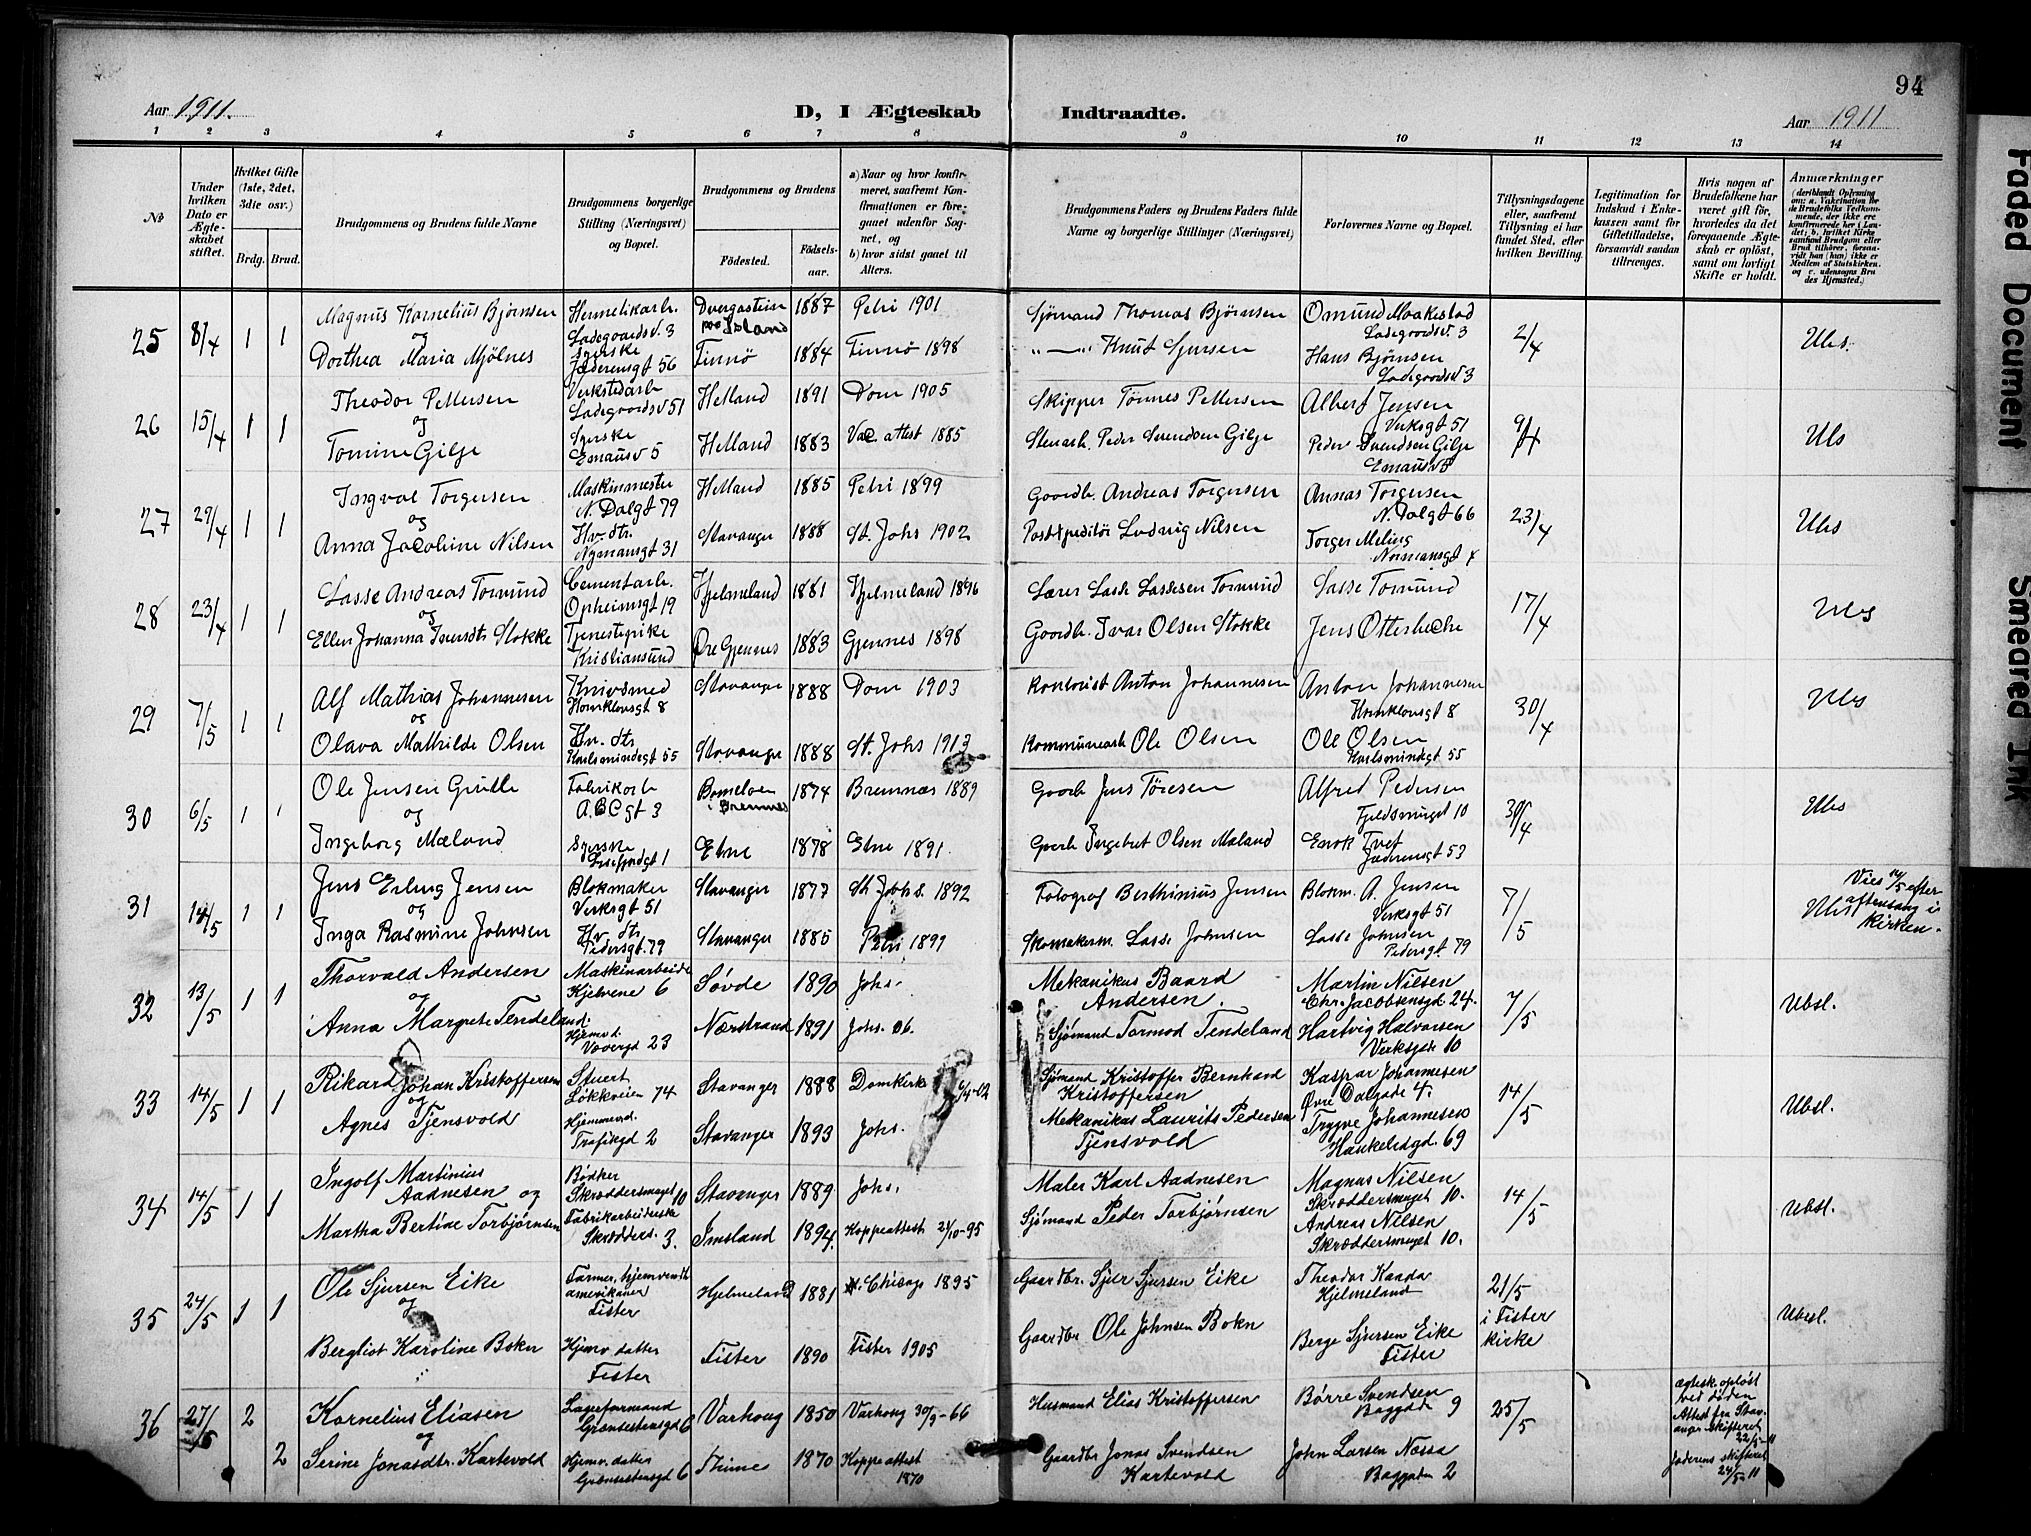 94
Aar 1911.
D, I Ægteskab Indtraadte.
Aar 1911
1 2 3 4 5 6 7 8 9 10 11 12 13 14
№
Under hvilken Dato er Ægteskabet stiftet.
Hvilket Gifte (1ste, 2det, 3die osv.)
Brdg. Brud.
Brudgommens og Brudens fulde Navne
Brudgommens borgerlige Stilling (Næringsvei) og Bopæl.
Brudgommens og Brudens
Fødested. Fødselsaar.
a) Naar og hvor konfirmeret, saafremt Konfirmationen er foregaaet udenfor Sognet, og
b) hvor sidst gaaet til Alters.
Brudgommens Faders og Brudens Faders fulde Navne og borgerlige Stillinger (Næringsvei)
Forlovernes Navne og Bopæl.
Tillysningsdagene eller, saafremt Tillysning ei har fundet Sted, efter hvilken Bevilling.
Legitimation for Indskud i Enkekassen samt for Giftetilladelse, forsaavidt saadan tiltrænges.
Hvis nogen af Brudefolkene har været gift før, hvorledes da det foregaaende Ægteskab er opløst, samt om lovligt Skifte er holdt.
Anmærkninger
(deriblandt Oplysning om: a. Vakcination for de Brudefolks Vedkommende, der ikke ere konfirmerede her i Landet; b. hvilket Kirkesamfund Brudgom eller Brud tilhører, forsaavidt han (hun) ikke er Medlem af Statskirken. og c. udensogns Brudes Hjemsted.)
25 8/4 1 1 Magnus Kornelius Bjørnsen Ladegaardsv. 3 Island 1887 Petri 1901 Sjømand Thomas Bjørnsen Omund Maakestad Ladegaardsv. 3 2/4 Ubs.
og
Dorthea Maria Mjølnes Syerske Jæderensgt 56 Finnø 1884 Finnø 1898 Knut Sjursen Hans Bjørnsen Ladegaardsv 3
26 15/4 1 1 Theodor Pettersen Verkstedarb Ladegaardsv 51 Hetland 1891 Dom 1905 Skipper Tønnes Pettersen Albert Jensen Verksgt 51 9/4 Ubs
og
Tomine Gilje Syerske Emausv 5 Hetland 1883 Vac. attest 1885 Stenarb. Peder Svendsen Gilje Peder Svendsen Gilje Emausv 5
27 29/4 1 1 Ingval Torgersen Maskinmester N. Dalgt 79 Hetland 1885 Petri 1899 Gaardb. Andreas Torgersen Annas Torgersen N. Dalgt 66 23/4 Ubs
og
Anna Jacobine Nilsen Hv. dtr. Nymansgt 31 Stavanger 1888 St. Johs 1902 Postexpeditør Ludvig Nilsen Torger Meling
28 23/4 1 1 Lasse Andreas Tormund Cementarb. Opheimsgt 19 Hjelmeland 1881 Hjelmeland 1896 Lærer Lasse Lassesen Tormund Lasse Tormund 17/4 Ubs
og
Ellen Johanna Stokke Tjenestepike Kristiansund Øre Gjemnes 1883 Gjemnes 1898 Gaardb. Ivar Olsen Stokke Jens Otterbeche
29 7/5 1 1 Alf Mathias Johannesen Knivsmed Hornklovsgt 8 Stavanger 1888 Dom 1903 Kontorist Anton Johannesen Anton Johannesen Hornklovsgt 8 30/4 Ubs
og
Olava Mathilde Olsen Hv. dtr. Karlsmindegt 55 Stavanger 1888 St. Johs 1903 Kommunearb Ole Olsen Ole Olsen Karlsmindegt 55
30 6/5 1 1 Ole Jensen Grutle Fabrikarb A.B.C gt 3 Bømeloen i Bremnes 1874 Bremnæs 1889 Gaarb Jens Tøresen Alfred Pedersen Fjeldsmuget 10 30/4 Ubs
og
Ingeborg Mæland Syerske Lysefjordgt 1 Etne 1878 Etne 1891. Gaarb Ingebret Olsen Mæland Enok Tvet Jæderensgt 53
31 14/5 1 1 Jens Erling Jensen Blokmaker Verksgt 51 Stavanger 1877 St. Johs. 1892 Fotograf Berthinius Jensen Blokm. A. Jensen Verksgt 51 7/5 Ubs Vies 14/5 efter aftensang i kirken.
og
Inga Rasmine Johnsen Hv. dtr. Pedersgt 79 Stavanger 1885 Petri 1899 Skomakerm. Lasse Johnsen Lasse Johnsen Pedersgt 79
32 13/5 1 1 Thorvald Andersen Maskinarbeider Kjelvene 6 Søvde 1890 Johs. Mekanikus Baard Andersen. Martin Nilsen Chr. Jacobsensgd. 24. 7/5 Ubsl.
og
Anna Margrete Tendeland. Hjemv.d. Vævergd 23 Nærstrand 1891 Johs. 06. Sjømand Tormod Tendeland Hartvig Halvorsen Verksgate 10
33 14/5 1 1 Rikard Johan Kristoffersen Stuert Løkkeveien 74 Stavanger 1888 Domkirk 6/4-02 Sjømand Kristoffer Bernhard Kristoffersen Kaspar Johannesen Øvre Dalgade 4. 14/5 Ubsl.
og
Agnes Tjensvold Hjemmevd. Trafikgd 2 Stavanger 1893 Johs. Mekanikus Laurits Pedersen Tjensvold Trygve Johannesen Haukeligd. 69
34 14/5 1 1 Ingolf Martinius Aadnesen og Bødker Skræddersmuget 10 Stavanger 1889 Johs. Maler Karl Aadnesen Magnus Nilsen Skræddersmuget 10. 14/5 Ubsl.
Martha Bertine Torbjørnsen Fabrikarbeiderske Skrædders. 3. Imsland 1894. Koppeattest 21/10-95 Sjømand Peder Torbjørnsen Andreas Nilsen Skræddersmuget 10.
35 24/5 1 1 Ole Sjursen Eike Farmer, hjemvendt amerikaner Fister Hjelmeland 1881 Chicago 1895 Gaardbr. Sjur Sjursen Eike Theodor Kaada Hjelmeland 21/5 i Fister kirke Ubsl.
og
Bergliot Karoline Bokn Hjemv. datter Fister Fister 1890 Fister 1905 Gaardbr Ole Johnsen Bokn Berge Sjursen Eike Fister
36 27/5 2 Kornelius Eliasen Lagerformand Grønsestensgd 6 Varhoug 1850 Varhoug 30/9-66 Husmand Elias Kristoffersen Børre Svendsen Baggade 9 25/5 Ægtesk. opløst ved døden Attest fra Stavanger Skifteret 22/5-11
og
2 Serine Jonasdtr. Kartevold Hjemv. datter Grønsestensgd 6 Thime 1870 Koppeattest 1870 Gaardbr Jonas Svendsen Kartevold John Larsen Næssa Baggaden 2 Jæderens skifteret 24/5 11
Faded Document
Smeared Ink